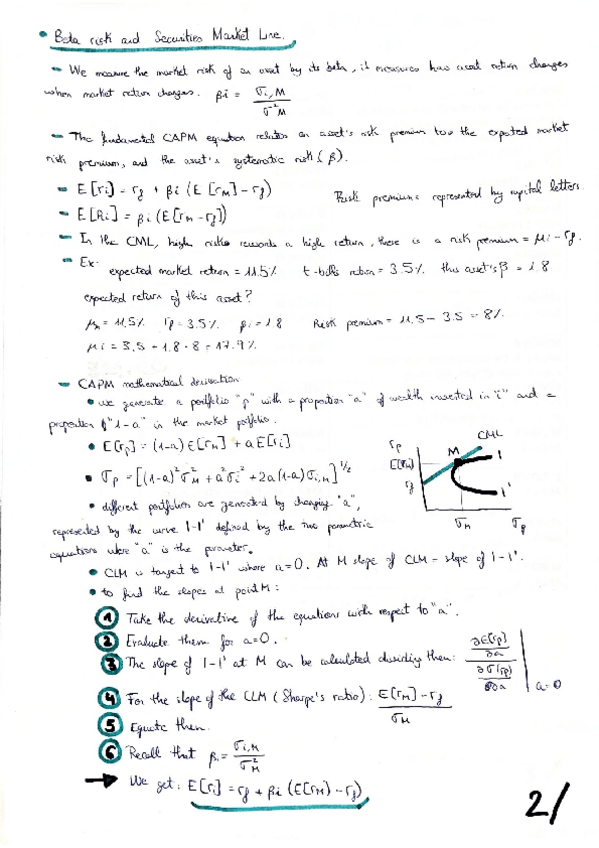 • Beta risk and Securities Market Line.
- We measure the market risk of an asset by its beta, it measures how asset return changes
when market return changes. βi = σi,M / σ²M
- The fundamental CAPM equation relates an asset's risk premium to the expected market
risk premium, and the asset's systematic risk (β).
- E[ri] = rf + βi (E[rM] - rf)
Risk premiums represented by capital letters.
- E[Ri] = βi (E[rM - rf])
- In the CML, high risks rewards a high return, there is a risk premium = μi - rf.
- Ex. expected market return = 11.5% t-bills return = 3.5% this asset's β = 1.8
expected return of this asset?
μM = 11,5% rf = 3.5% βi = 1.8 Risk premium = 11,5 - 3.5 = 8%
μi = 3,5 + 1.8 · 8 = 17.9%
- CAPM mathematical derivation
• we generate a portfolio "p" with a proportion "a" of wealth invested in "i" and a
proportion of "1-a" in the market portfolio.
• E[rp] = (1-a)E[rM] + aE[ri]
• σp = [(1-a)²σ²M + a²σi² + 2a(1-a)σi,M]^1/2
• different portfolios are generated by changing "a",
represented by the curve I-I' defined by the two parametric
equations where "a" is the parameter.
rp
E(rM)
rf
M
CML
I
I'
σM
σp
• CLM is tangent to I-I' where a=0. At M slope of CLM = slope of I-I'.
• to find the slopes at point M:
1 Take the derivative of the equations with respect to "a".
2 Evaluate them for a=0.
3 The slope of I-I' at M can be calculated dividing them: ∂E(rp)/∂a / ∂σ(rp)/∂a | a=0
4 For the slope of the CLM (Sharpe's ratio): E[rM] - rf / σM
5 Equate them.
6 Recall that βi = σi,M / σ²M
→ We get: E[ri] = rf + βi (E(rM) - rf)
2/